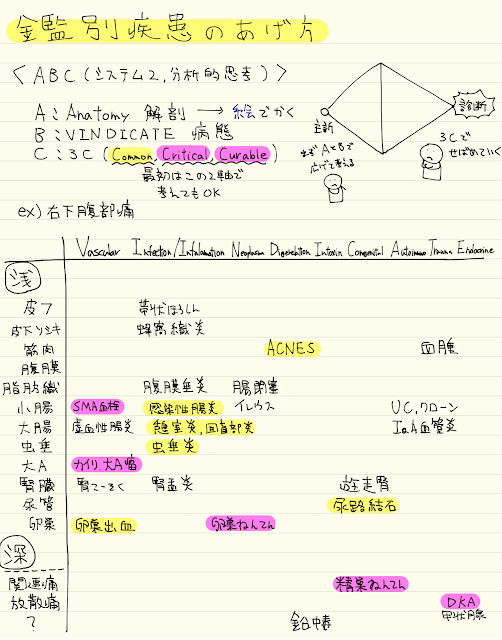 金監別疾患のあげ方
＜ABC(システム2,分析的思考)＞
A：Anatomy 解剖 → 絵でかく
B：VINDICATE 病態
C：3C(Common, Critical, Curable)
最初はこの2軸で
考えてもOK
主訴
まず AとBで
広げて考える
診断
3Cで
せばめていく
ex)右下腹部痛
Vascular Infection/Inflamation Neoplasm Degeneration Intoxin Congenital Autoimmu Trauma Endocrine
浅
皮フ 帯状ほうしん
皮下ソシキ 蜂窩織炎
筋肉 ACNES 血腫
腹膜
脂肪織 腹膜垂炎 腸閉塞
小腸 SMA血栓 感染性腸炎 イレウス UC,クローン
大腸 虚血性腸炎 憩室炎,回盲部炎 IgA血管炎
虫垂 虫垂炎
大A カイリ,大A瘤
腎臓 腎こーそく 腎盂炎 遊走腎
尿管 尿路結石
卵巣 卵巣出血 卵巣ねんてん
深
関連痛 精巣ねんてん
放散痛 DKA
？ 鉛中毒 甲状腺